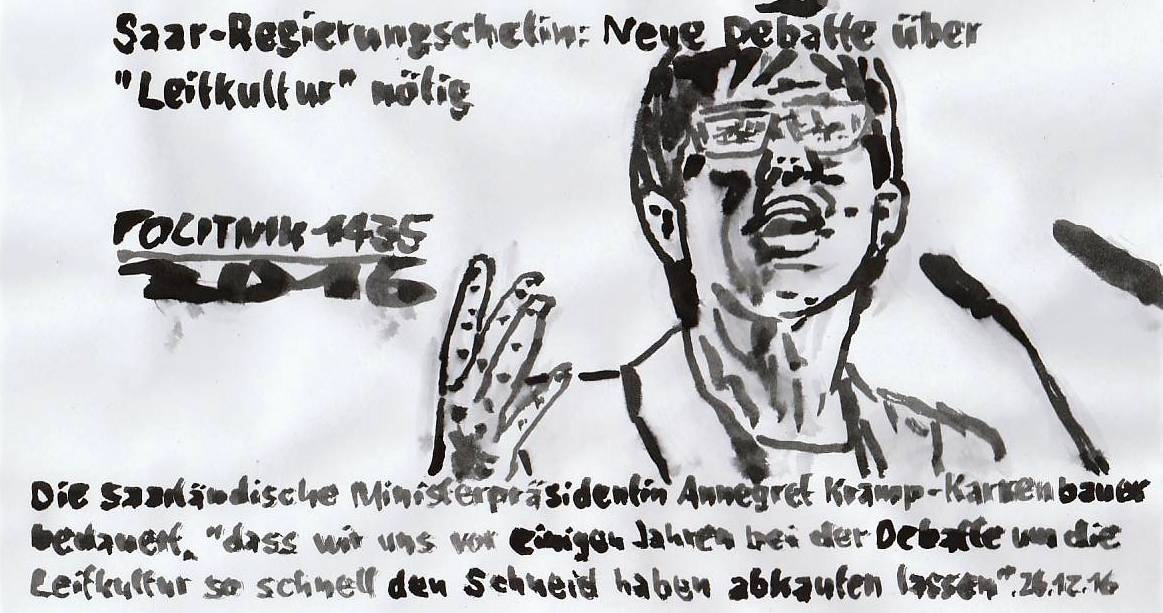 Saar-Regierungschefin: Neue Debatte über
"Leitkultur" nötig
POLITNIK 1435
2016
Die saarländische Ministerpräsidentin Annegret Kramp-Karrenbauer
bedauert, "dass wir uns vor einigen Jahren bei der Debatte um die
Leitkultur so schnell den Schneid haben abkaufen lassen".26.12.16